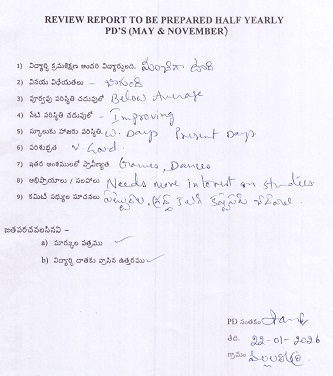 REVIEW REPORT TO BE PREPARED HALF YEARLY
PD'S (MAY & NOVEMBER)
1) విద్యార్థి క్రమశిక్షణ అందరి విద్యార్థులది.
2) వినయ విధేయతలు - బాగుంది
3) పూర్వపు పరిస్థితి చదువులో Below Average
4) నేటి పరిస్థితి చదువులో - Improving
5) స్కూలుకు హాజరు పరిస్థితి. W. Days Present Days
6) పరిశుభ్రత V. Good
7) ఇతర అంశములలో ప్రావీణ్యత Games, Dances
8) అభిప్రాయాలు / సలహాలు Needs more interest on studies
9) కమిటి సభ్యుల సూచనలు
జతపరచవలసినవి -
a) మార్కుల పత్రము ✓
b) విద్యార్థి దాతకు వ్రాసిన ఉత్తరము ✓
PD సంతకం
తేది. 22-01-2026
గ్రామం